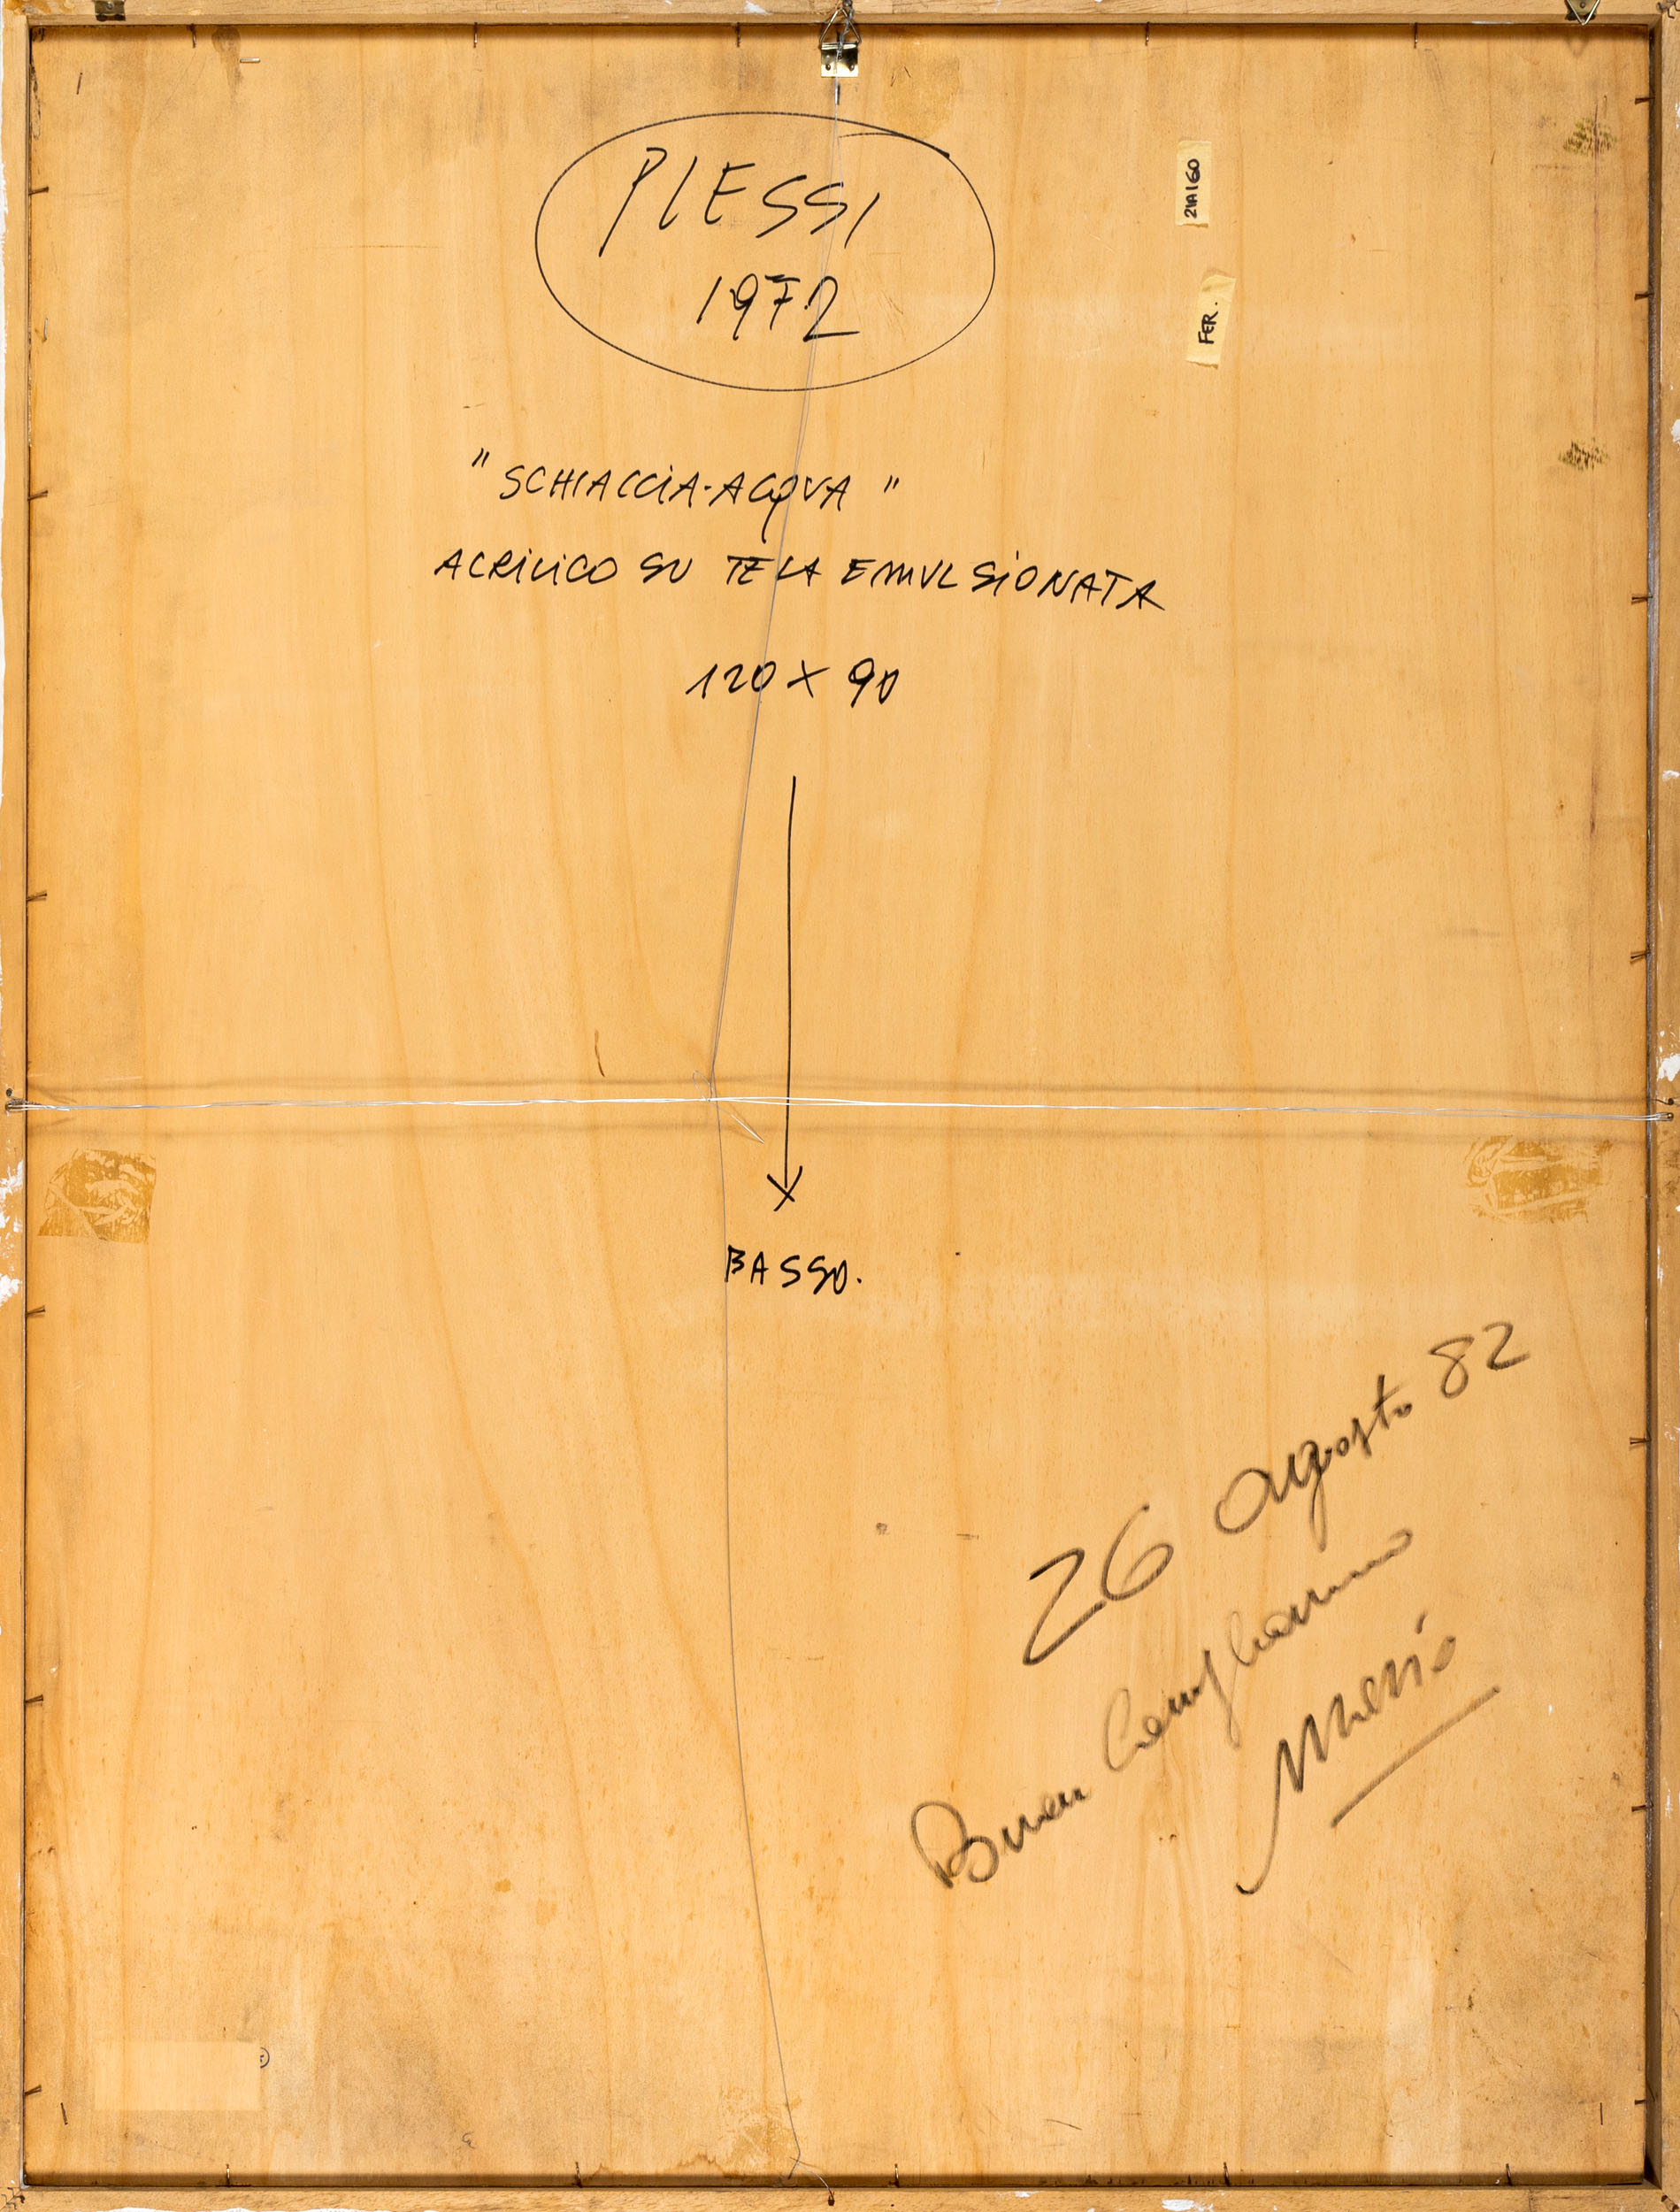 PLESSI
1972
21A160
FER.
"SCHIACCIA-ACQUA"
ACRILICO SU TELA EMULSIONATA
120 X 90
BASSO.
26 Agosto 82
Buon Compleanno